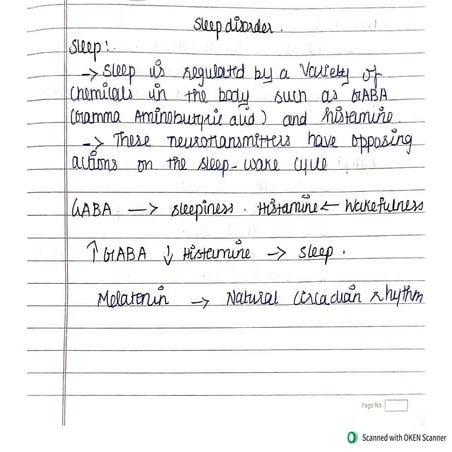 Sleep disorder.
Sleep:
→ Sleep is regulated by a variety of
chemicals in the body such as GABA
(Gamma Aminobutyric acid) and histamine.
→ These neurotransmitters have opposing
actions on the sleep-wake cycle
GABA → sleepiness. Histamine ← Wakefulness
↑ GABA ↓ Histamine → sleep.
Melatonin → Natural Circadian rhythm
Page No.
Scanned with OKEN Scanner